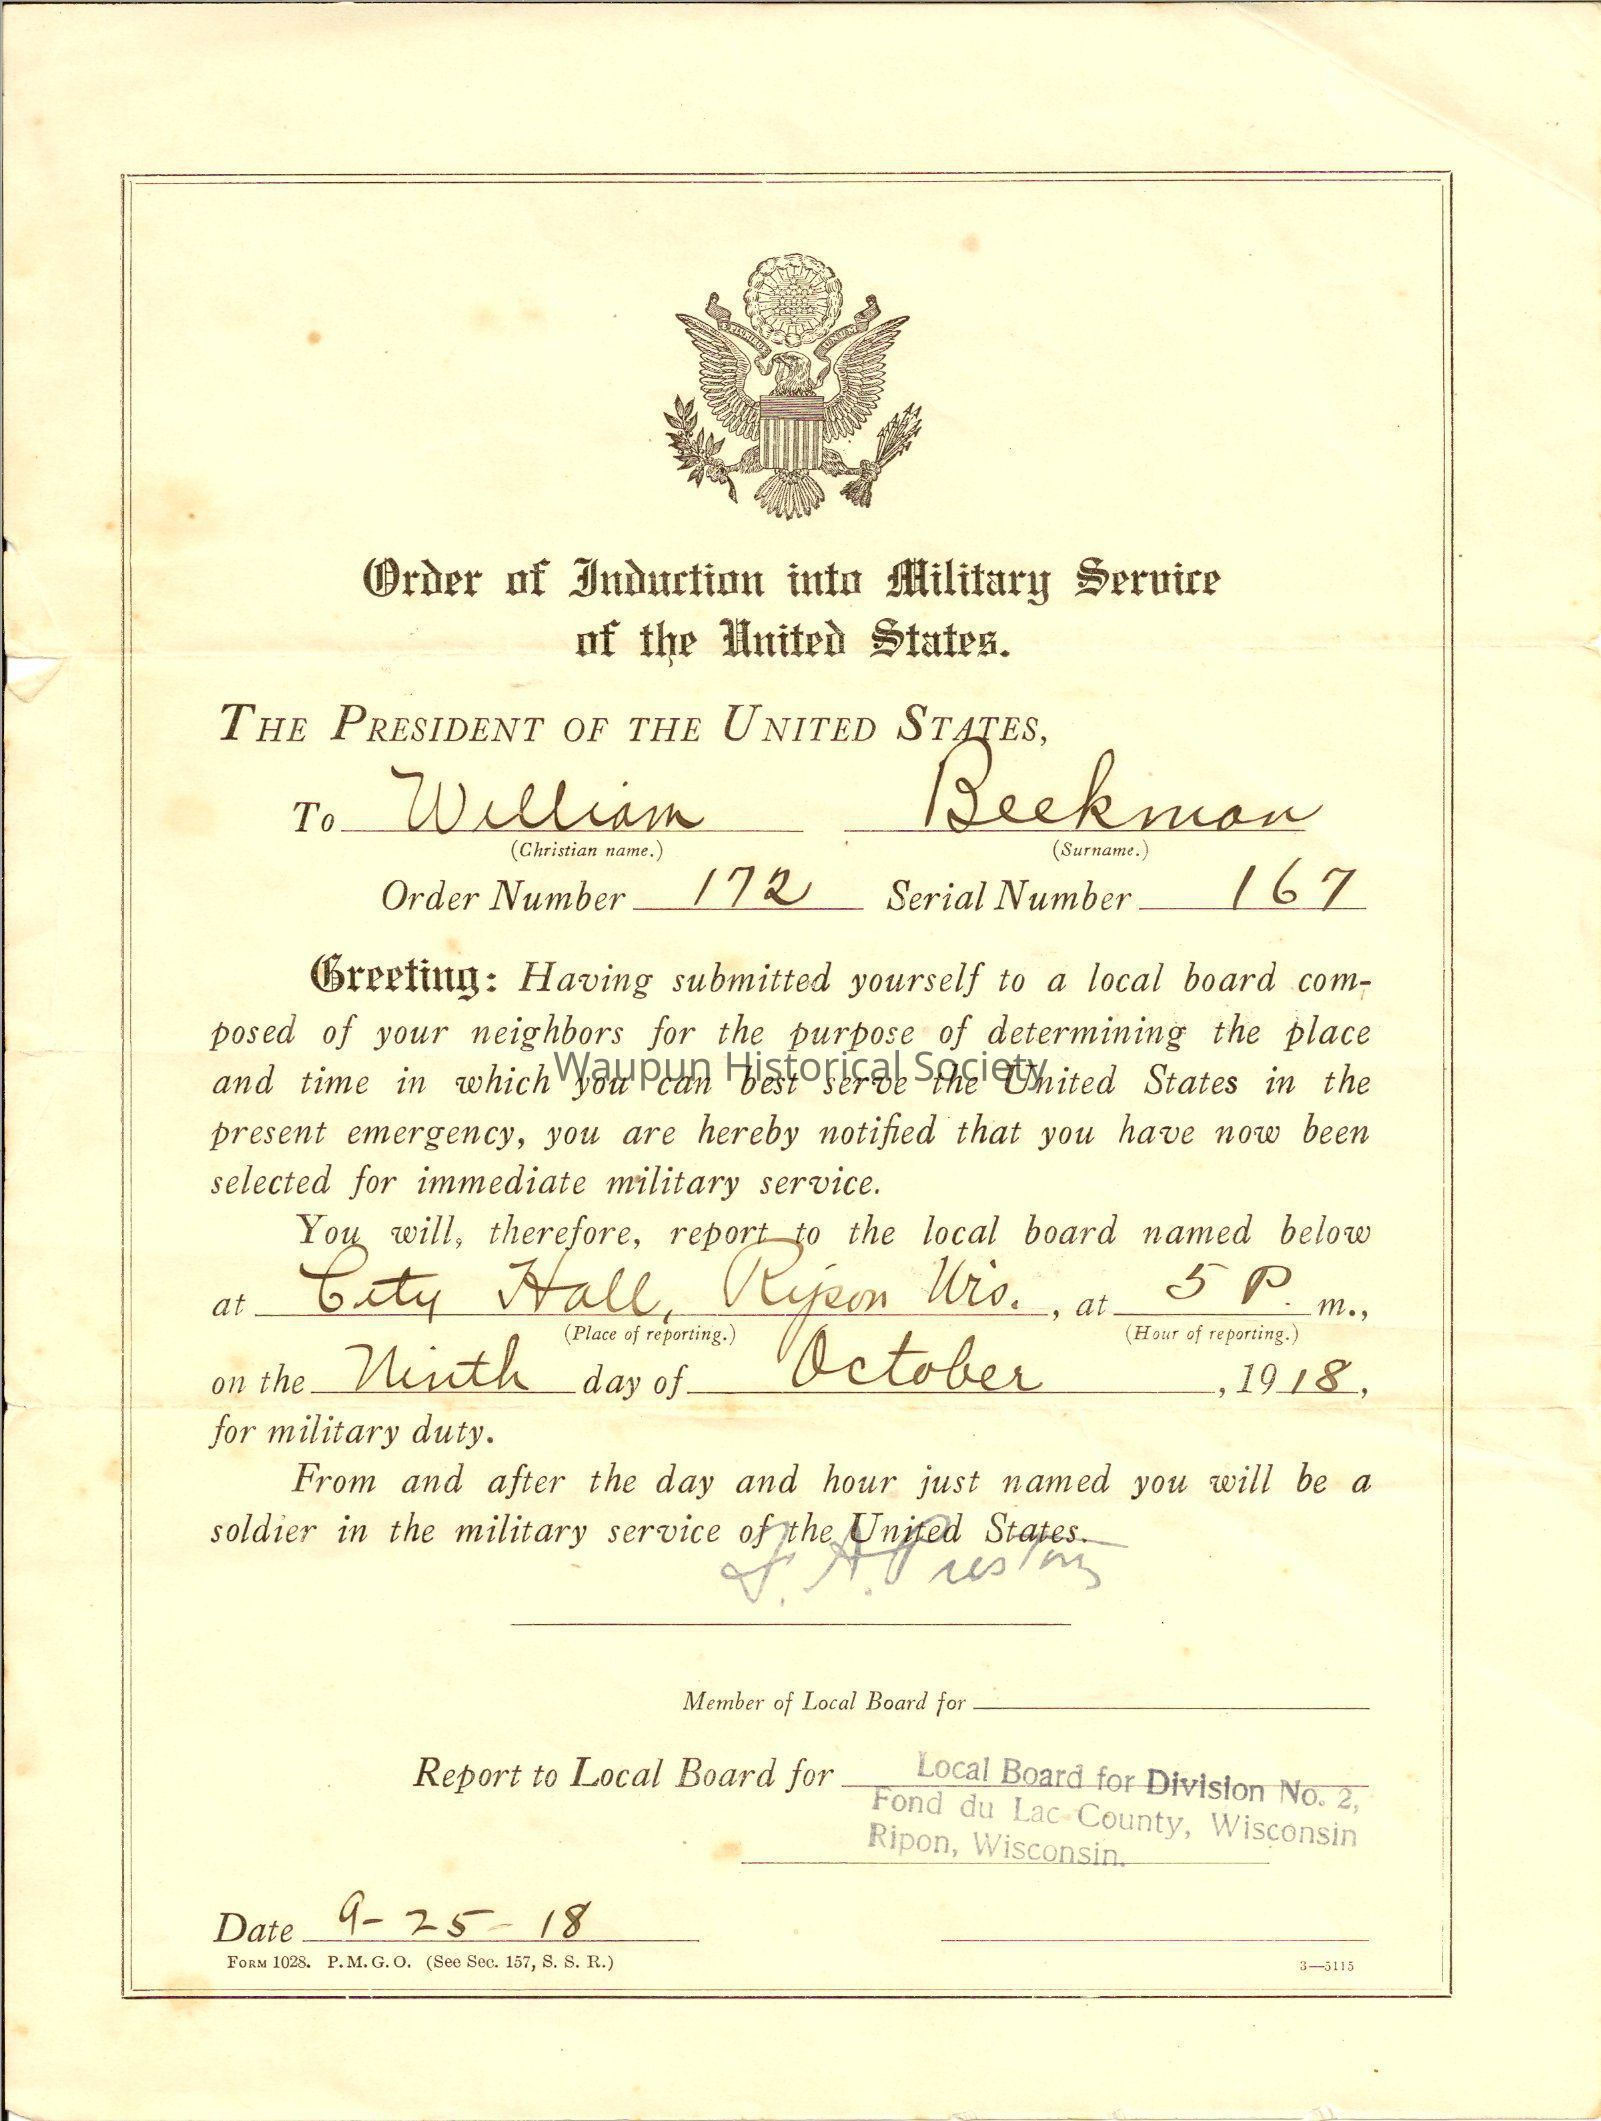 Order of Induction into Military Service
of the United States.
THE PRESIDENT OF THE UNITED STATES,
To William Beekman
(Christian name.) (Surname.)
Order Number 172 Serial Number 167
Greeting: Having submitted yourself to a local board com-
posed of your neighbors for the purpose of determining the place
Waupun Historical Society
and time in which you can best serve the United States in the
present emergency, you are hereby notified that you have now been
selected for immediate military service.
You will, therefore, report to the local board named below
at City Hall, Ripon Wis., at 5 P. m.,
(Place of reporting.) (Hour of reporting.)
on the Ninth day of October, 1918,
for military duty.
From and after the day and hour just named you will be a
soldier in the military service of the United States.
A. Preston
Member of Local Board for
Report to Local Board for Local Board for Division No. 2,
Fond du Lac County, Wisconsin
Ripon, Wisconsin.
Date 9-25-18
FORM 1028. P.M.G.O. (See Sec. 157, S. S. R.)
3—5115